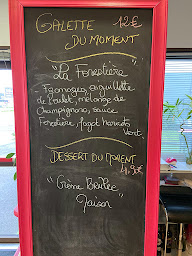 GALETTE 12€
DU MOMENT
"La Forestière"
- Fromages, aiguillette
de Poulet, mélange de
Champignons, sauce
Forestière, fagot haricots
Vert.
DESSERT DU MOMENT
4,90€
"Crème Brûlée"
Maison